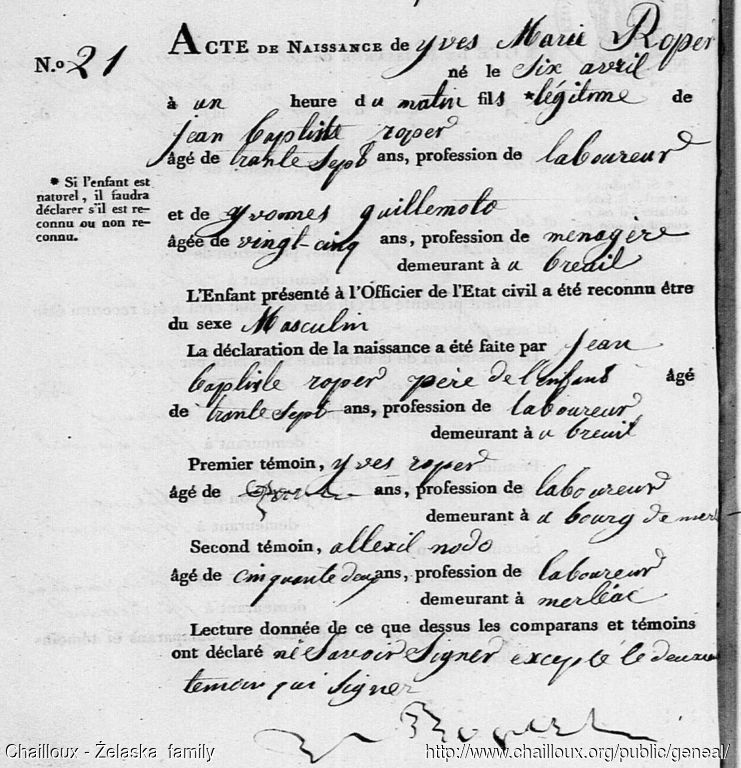 N.o 21
ACTE DE NAISSANCE de yves Marie Roper
né le Six avril
à un heure du matin fils *légitme de
jean baptiste roper
âgé de trante Sept ans, profession de laboureur
* Si l'enfant est
naturel, il faudra
déclarer s'il est re-
connu ou non re-
connu.
et de yvonnes guillemoto
âgée de vingt-cinq ans, profession de menagère
demeurant à a breuil
L'Enfant présenté à l'Officier de l'Etat civil a été reconnu être
du sexe Masculin
La déclaration de la naissance a été faite par jean
baptiste roper père de l'enfant âgé
de trante Sept ans, profession de laboureur
demeurant à a breuil
Premier témoin, yves roper
âgé de ans, profession de laboureur
demeurant à a bourg de mer
Second témoin, allexil nodo
âgé de cinquante deux ans, profession de laboureur
demeurant à merléac
Lecture donnée de ce que dessus les comparans et témoins
ont déclaré né Savoir Signer excepté le
temoin qui Signer
Chailloux - Żelaska family
http://www.chailloux.org/public/geneal/